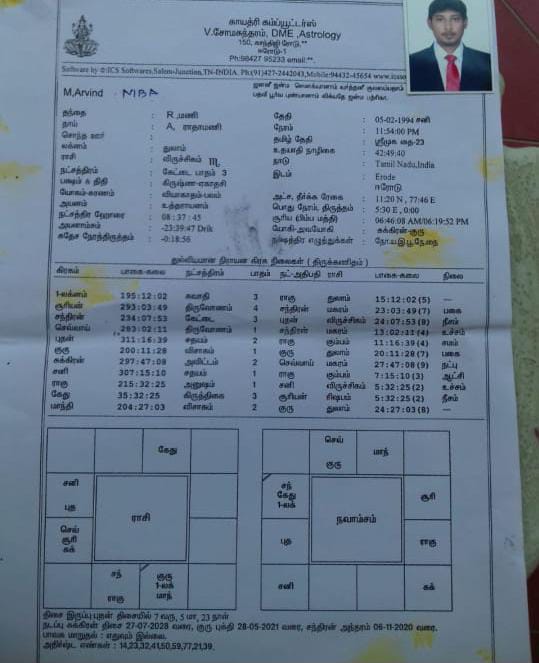 காயத்ரி கம்ப்யூட்டர்ஸ்
V.சோமசுந்தரம், DME ,Astrology
150, காந்திஜி ரோடு,**
ஈரோடு-1
Ph:98427 95233 email:**.
Software by ©:ICS Softwares,Salem-Junction,TN-INDIA. Ph:(91)427-2442043,Mobile:94432-45654
M,Arvind MBA
தந்தை : R ,மணி
தாய் : A, ராதாமணி
சொந்த ஊர் :
லக்னம் : துலாம்
ராசி : விருச்சிகம் ♏
நட்சத்திரம் : கேட்டை பாதம் 3
பக்ஷம் & திதி : கிருஷ்ண-ஏகாதசி
யோகம்-கரணம் : வியாகாதம்-பவம்
அயனம் : உத்தராயனம்
நட்சத்திர ஹோரை : 08:37:45
அயனாம்சம் : -23:39:47 Drik
சுதேச நேரத்திருத்தம் : -0:18:56
தேதி : 05-02-1994 சனி
நேரம் : 11:54:00 PM
தமிழ் தேதி : ஸ்ரீமுக தை-23
உதயாதி நாழிகை : 42:49:40
நாடு : Tamil Nadu,India
இடம் : Erode
ஈரோடு
அட்ச, தீர்க்க ரேகை : 11:20 N , 77:46 E
பொது நேரம், திருத்தம் : 5:30 E , 0:00
சூரிய (பிம்ப மத்தி) : 06:46:08 AM/06:19:52 PM
யோகி-அவயோகி : சுக்கிரன்-குரு
நக்ஷத்திர எழுத்துக்கள் : நோ,ய,இ,பூ,நே,நை
துல்லியமான நிராயன கிரக நிலைகள் ( திருக்கணிதம் )
கிரகம் பாகை-கலை நட்சத்திரம் பாதம் நட்-அதிபதி ராசி பாகை-கலை நிலை
1-லக்னம் 195:12:02 சுவாதி 3 ராகு துலாம் 15:12:02 (5) ---
சூரியன் 293:03:49 திருவோணம் 4 சந்திரன் மகரம் 23:03:49 (7) பகை
சந்திரன் 234:07:53 கேட்டை 3 புதன் விருச்சிகம் 24:07:53 (8) நீசம்
செவ்வாய் 283:02:11 திருவோணம் 1 சந்திரன் மகரம் 13:02:11 (4) உச்சம்
புதன் 311:16:39 சதயம் 2 ராகு கும்பம் 11:16:39 (4) சமம்
குரு 200:11:28 விசாகம் 1 குரு துலாம் 20:11:28 (7) பகை
சுக்கிரன் 297:47:08 அவிட்டம் 2 செவ்வாய் மகரம் 27:47:08 (9) நட்பு
சனி 307:15:10 சதயம் 1 ராகு கும்பம் 7:15:10 (3) ஆட்சி
ராகு 215:32:25 அனுஷம் 1 சனி விருச்சிகம் 5:32:25 (2) உச்சம்
கேது 35:32:25 கிருத்திகை 3 சூரியன் ரிஷபம் 5:32:25 (2) நீசம்
மாந்தி 204:27:03 விசாகம் 2 குரு துலாம் 24:27:03 (8) ---
கேது
சனி
புத
செவ்
சூரி
சுக்
ராசி
சந்
ராகு
குரு
1-லக்
மாந்
செவ்
குரு
மாந்
சந்
கேது
1-லக்
சூரி
நவாம்சம்
புத
ராகு
சனி
சுக்
திசை இருப்பு:புதன் திசையில் 7 வரு, 5 மா, 23 நாள்
நடப்பு சுக்கிரன் திசை 27-07-2028 வரை, குரு புக்தி 28-05-2021 வரை, சந்திரன் அந்தரம் 06-11-2020 வரை.
பாவக மாறுதல் : எதுவும் இல்லை.
அதிர்ஷ்ட எண்கள் : 14,23,32,41,50,59,77,21,39.